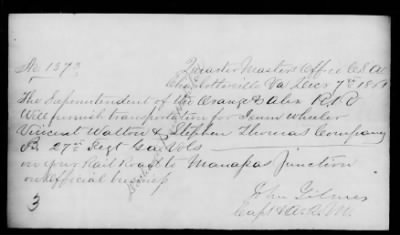 No 1373
Quarter Masters Office C.S.A
Charlottesville Va Decr 7th 1861
The Superintendent of the Orange & Alex R.R.
Will furnish transportation for
Vincent Walton & Stephen Thomas Company
B. 27th Regt Ga Vols
on your Rail Road to Manapas Junction
on official business
John
Capt & A.Q.M.
3